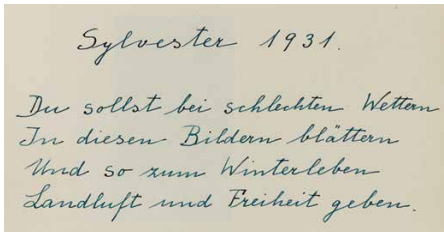 Sylvester 1931.
Du sollst bei schlechten Wettern
In diesen Bildern blättern
Und so zum Winterleben
Landluft und Freiheit geben.